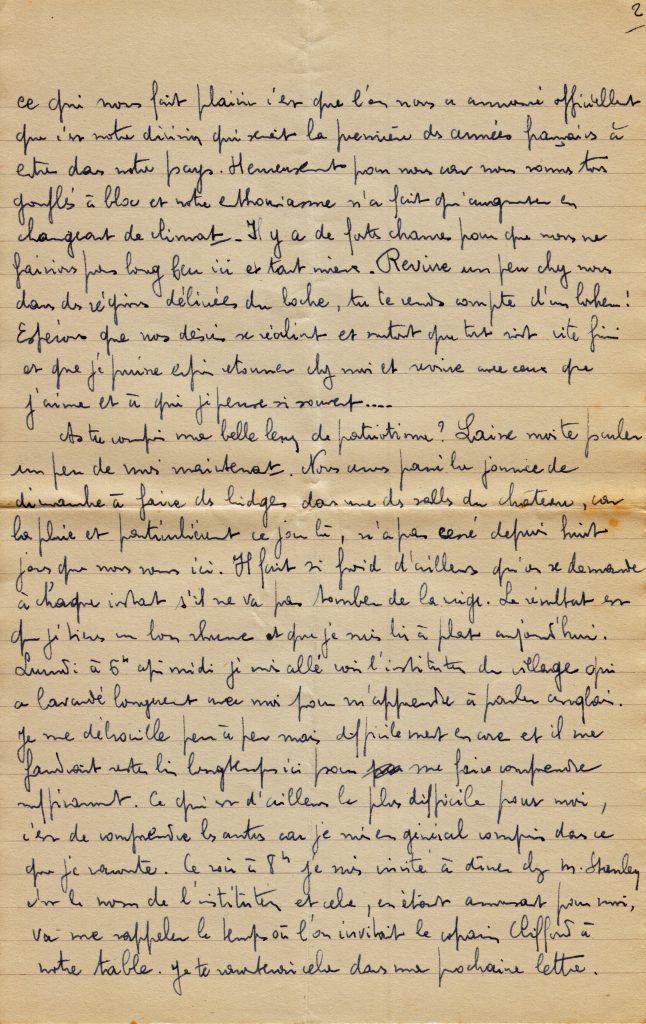 2
ce qui nous fait plaisir c'est que l'on nous a annoncé officiellement
que c'est notre division qui serait la première des armées françaises à
entrer dans notre pays. Heureusement pour nous car nous sommes tous
gonflés à bloc et notre enthousiasme n'a fait qu'augmenter en
changeant de climat. Il y a de fortes chances pour que nous ne
faisions pas long feu ici et tant mieux. Revivre un peu chez nous
dans des régions délivrées du boche, tu te rends compte d'un bonheur!
Espérons que nos désirs se réalisent et surtout que tout soit vite fini
et que je puisse enfin retourner chez moi et revivre avec ceux que
j'aime et à qui je pense si souvent....
As tu compris ma belle leçon de patriotisme? Laisse moi te parler
un peu de moi maintenant. Nous avons passé la journée de
dimanche à faire des bridges dans une des salles du château, car
la pluie et particulièrement ce jour là, n'a pas cessé depuis huit
jours que nous sommes ici. Il fait si froid d'ailleurs qu'on se demande
à chaque instant s'il ne va pas tomber de la neige. Le résultat est
que je tiens un bon rhume et que je suis bien à plat aujourd'hui.
Lundi à 5h après midi je suis allé voir l'instituteur du village qui
a bavardé longuement avec moi pour m'apprendre à parler anglais.
Je me débrouille peu à peu mais difficilement encore et il me
faudrait rester bien longtemps ici pour me faire comprendre
suffisamment. Ce qui est d'ailleurs le plus difficile pour moi,
c'est de comprendre les autres car je suis en général compris dans ce
que je raconte. Ce soir à 8h je suis invité à dîner chez M. Stanley
c'est le nom de l'instituteur et cela, en étant amusant pour moi,
va me rappeler le temps où l'on invitait le copain Clifford à
notre table. Je te raconterai cela dans ma prochaine lettre.